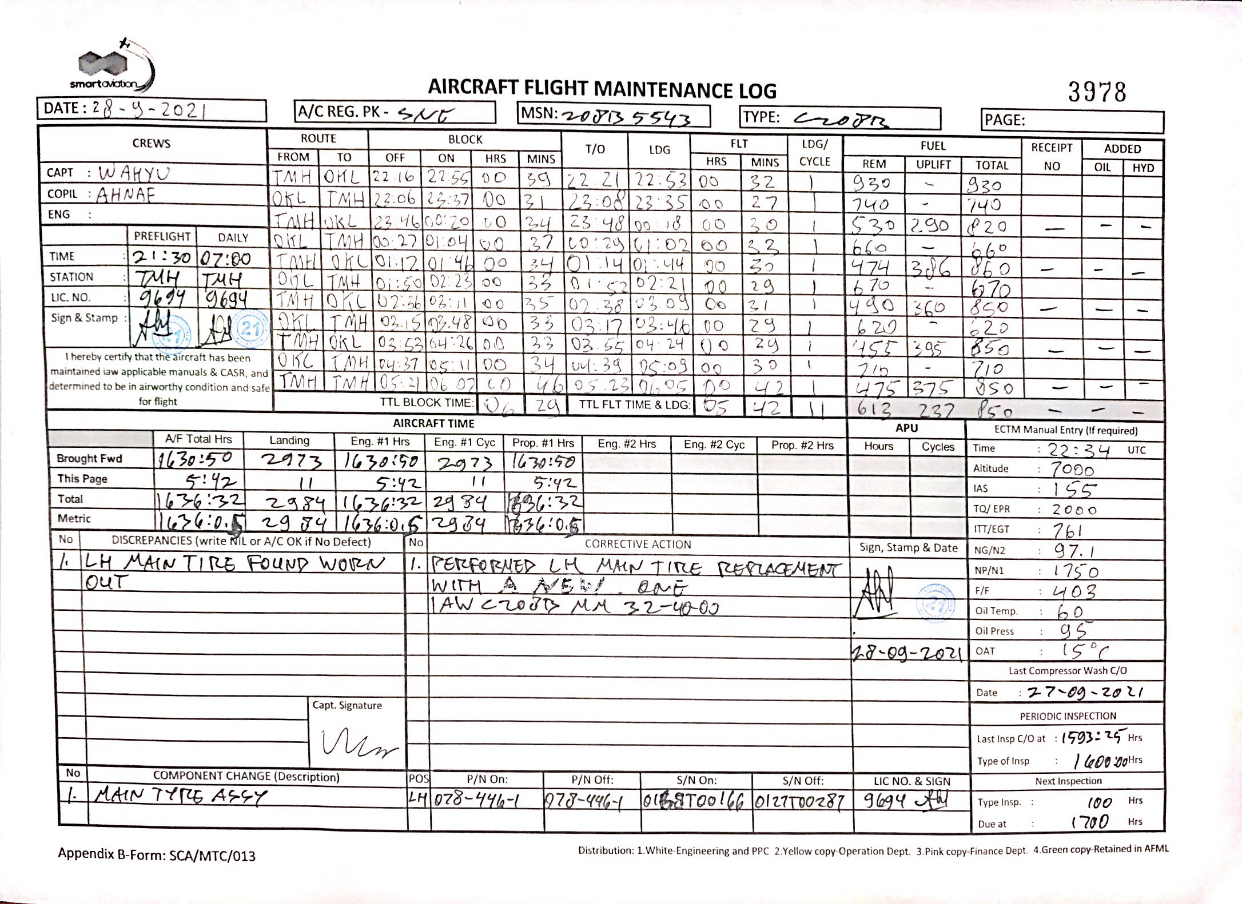 smartaviation
AIRCRAFT FLIGHT MAINTENANCE LOG
3978
DATE : 28-9-2021 A/C REG. PK - SNE MSN: 208B 5543 TYPE: C208B PAGE:
CREWS ROUTE BLOCK T/O LDG FLT LDG/ CYCLE FUEL RECEIPT NO ADDED
FROM TO OFF ON HRS MINS HRS MINS REM UPLIFT TOTAL OIL HYD
CAPT : WAHYU TMH OKL 22.16 22:55 00 39 22 21 22:53 00 32 1 930 - 930
COPIL : AHNAF OKL TMH 23.06 23:37 00 31 23:08 23:35 00 27 1 740 - 740
ENG : TMH OKL 23.46 00:20 00 34 23:48 00:18 00 30 1 530 290 820 — — —
OKL TMH 00:27 01:04 00 37 00:29 01:02 00 33 1 660 - 660
TMH OKL 01:12 01:46 00 34 01:14 01:44 00 30 1 474 386 860 — — —
OKL TMH 01:50 02:23 00 33 01:52 02:21 00 29 1 670 - 670
TMH OKL 02:36 03:11 00 35 02:38 03:09 00 31 1 490 360 850 — — —
OKL TMH 03:15 03:48 00 33 03:17 03:46 00 29 1 620 - 620
TMH OKL 03:53 04:26 00 33 03:55 04:24 00 29 1 455 395 850 — — —
OKL TMH 04:37 05:11 00 34 04:39 05:09 00 30 1 710 - 710
TMH TMH 05:21 06:07 00 46 05:23 06:05 00 42 1 475 375 850 — — —
TTL BLOCK TIME: 06 29 TTL FLT TIME & LDG: 05 42 11 613 237 850 — — —
PREFLIGHT DAILY
TIME : 21:30 07:00
STATION : TMH TMH
LIC. NO. : 9694 9694
Sign & Stamp :
21
I hereby certify that the aircraft has been
maintained iaw applicable manuals & CASR, and
determined to be in airworthy condition and safe
for flight
AIRCRAFT TIME APU
A/F Total Hrs Landing Eng. #1 Hrs Eng. #1 Cyc Prop. #1 Hrs Eng. #2 Hrs Eng. #2 Cyc Prop. #2 Hrs Hours Cycles
Brought Fwd 1630:50 2973 1630:50 2973 1630:50
This Page 5:42 11 5:42 11 5:42
Total 1636:32 2984 1636:32 2984 1636:32
Metric 1636:0.5 2984 1636:0.5 2984 1636:0.5
ECTM Manual Entry (If required)
Time : 22:34 UTC
Altitude : 7000
IAS : 155
TQ/ EPR : 2000
ITT/EGT : 761
NG/N2 : 97.1
NP/N1 : 1750
F/F : 403
Oil Temp. : 60
Oil Press : 95
OAT : 15°C
Last Compressor Wash C/O
Date : 27-09-2021
PERIODIC INSPECTION
Last Insp C/O at : 1593:25 Hrs
Type of Insp : 1600:00 Hrs
Next Inspection
Type Insp. : 100 Hrs
Due at : 1700 Hrs
No DISCREPANCIES (write NIL or A/C OK if No Defect) No CORRECTIVE ACTION Sign, Stamp & Date
1. LH MAIN TIRE FOUND WORN 1. PERFORMED LH MAIN TIRE REPLACEMENT
OUT WITH A NEW ONE
IAW C208B MM 32-40-00
28-09-2021
Capt. Signature
No COMPONENT CHANGE (Description) POS P/N On: P/N Off: S/N On: S/N Off: LIC NO. & SIGN
1. MAIN TYRE ASSY LH 078-446-1 078-446-1 0127T00287 9694
Appendix B-Form: SCA/MTC/013
Distribution: 1.White-Engineering and PPC 2.Yellow copy-Operation Dept. 3.Pink copy-Finance Dept. 4.Green copy-Retained in AFML